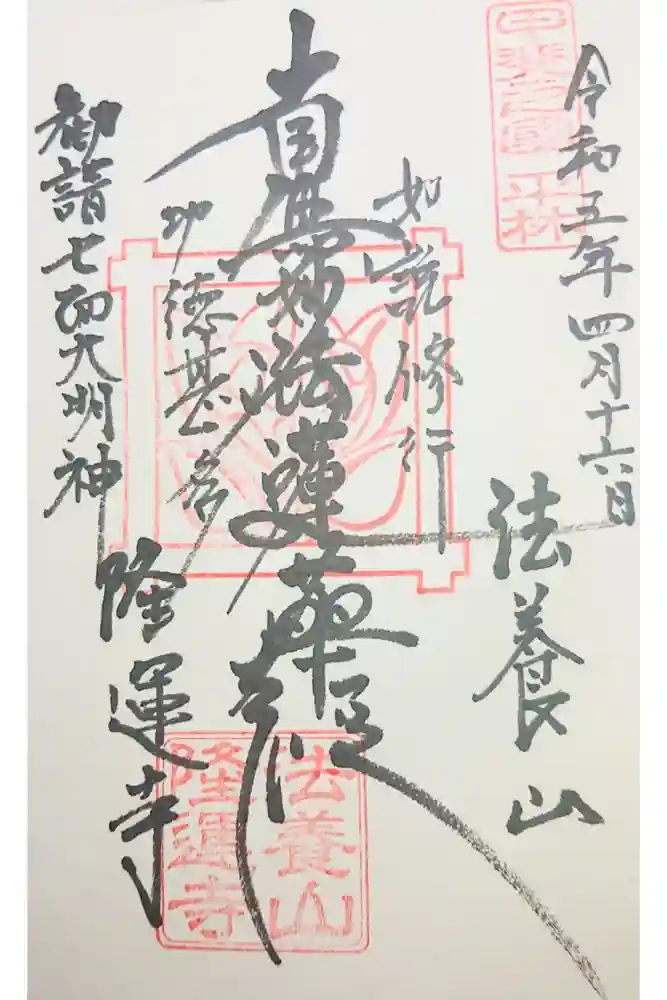 令和五年四月十六日
法養山
如説修行
南無妙法蓮華経
功徳甚多
隆運寺
勧請七面大明神
甲斐之國
法養山
隆運寺